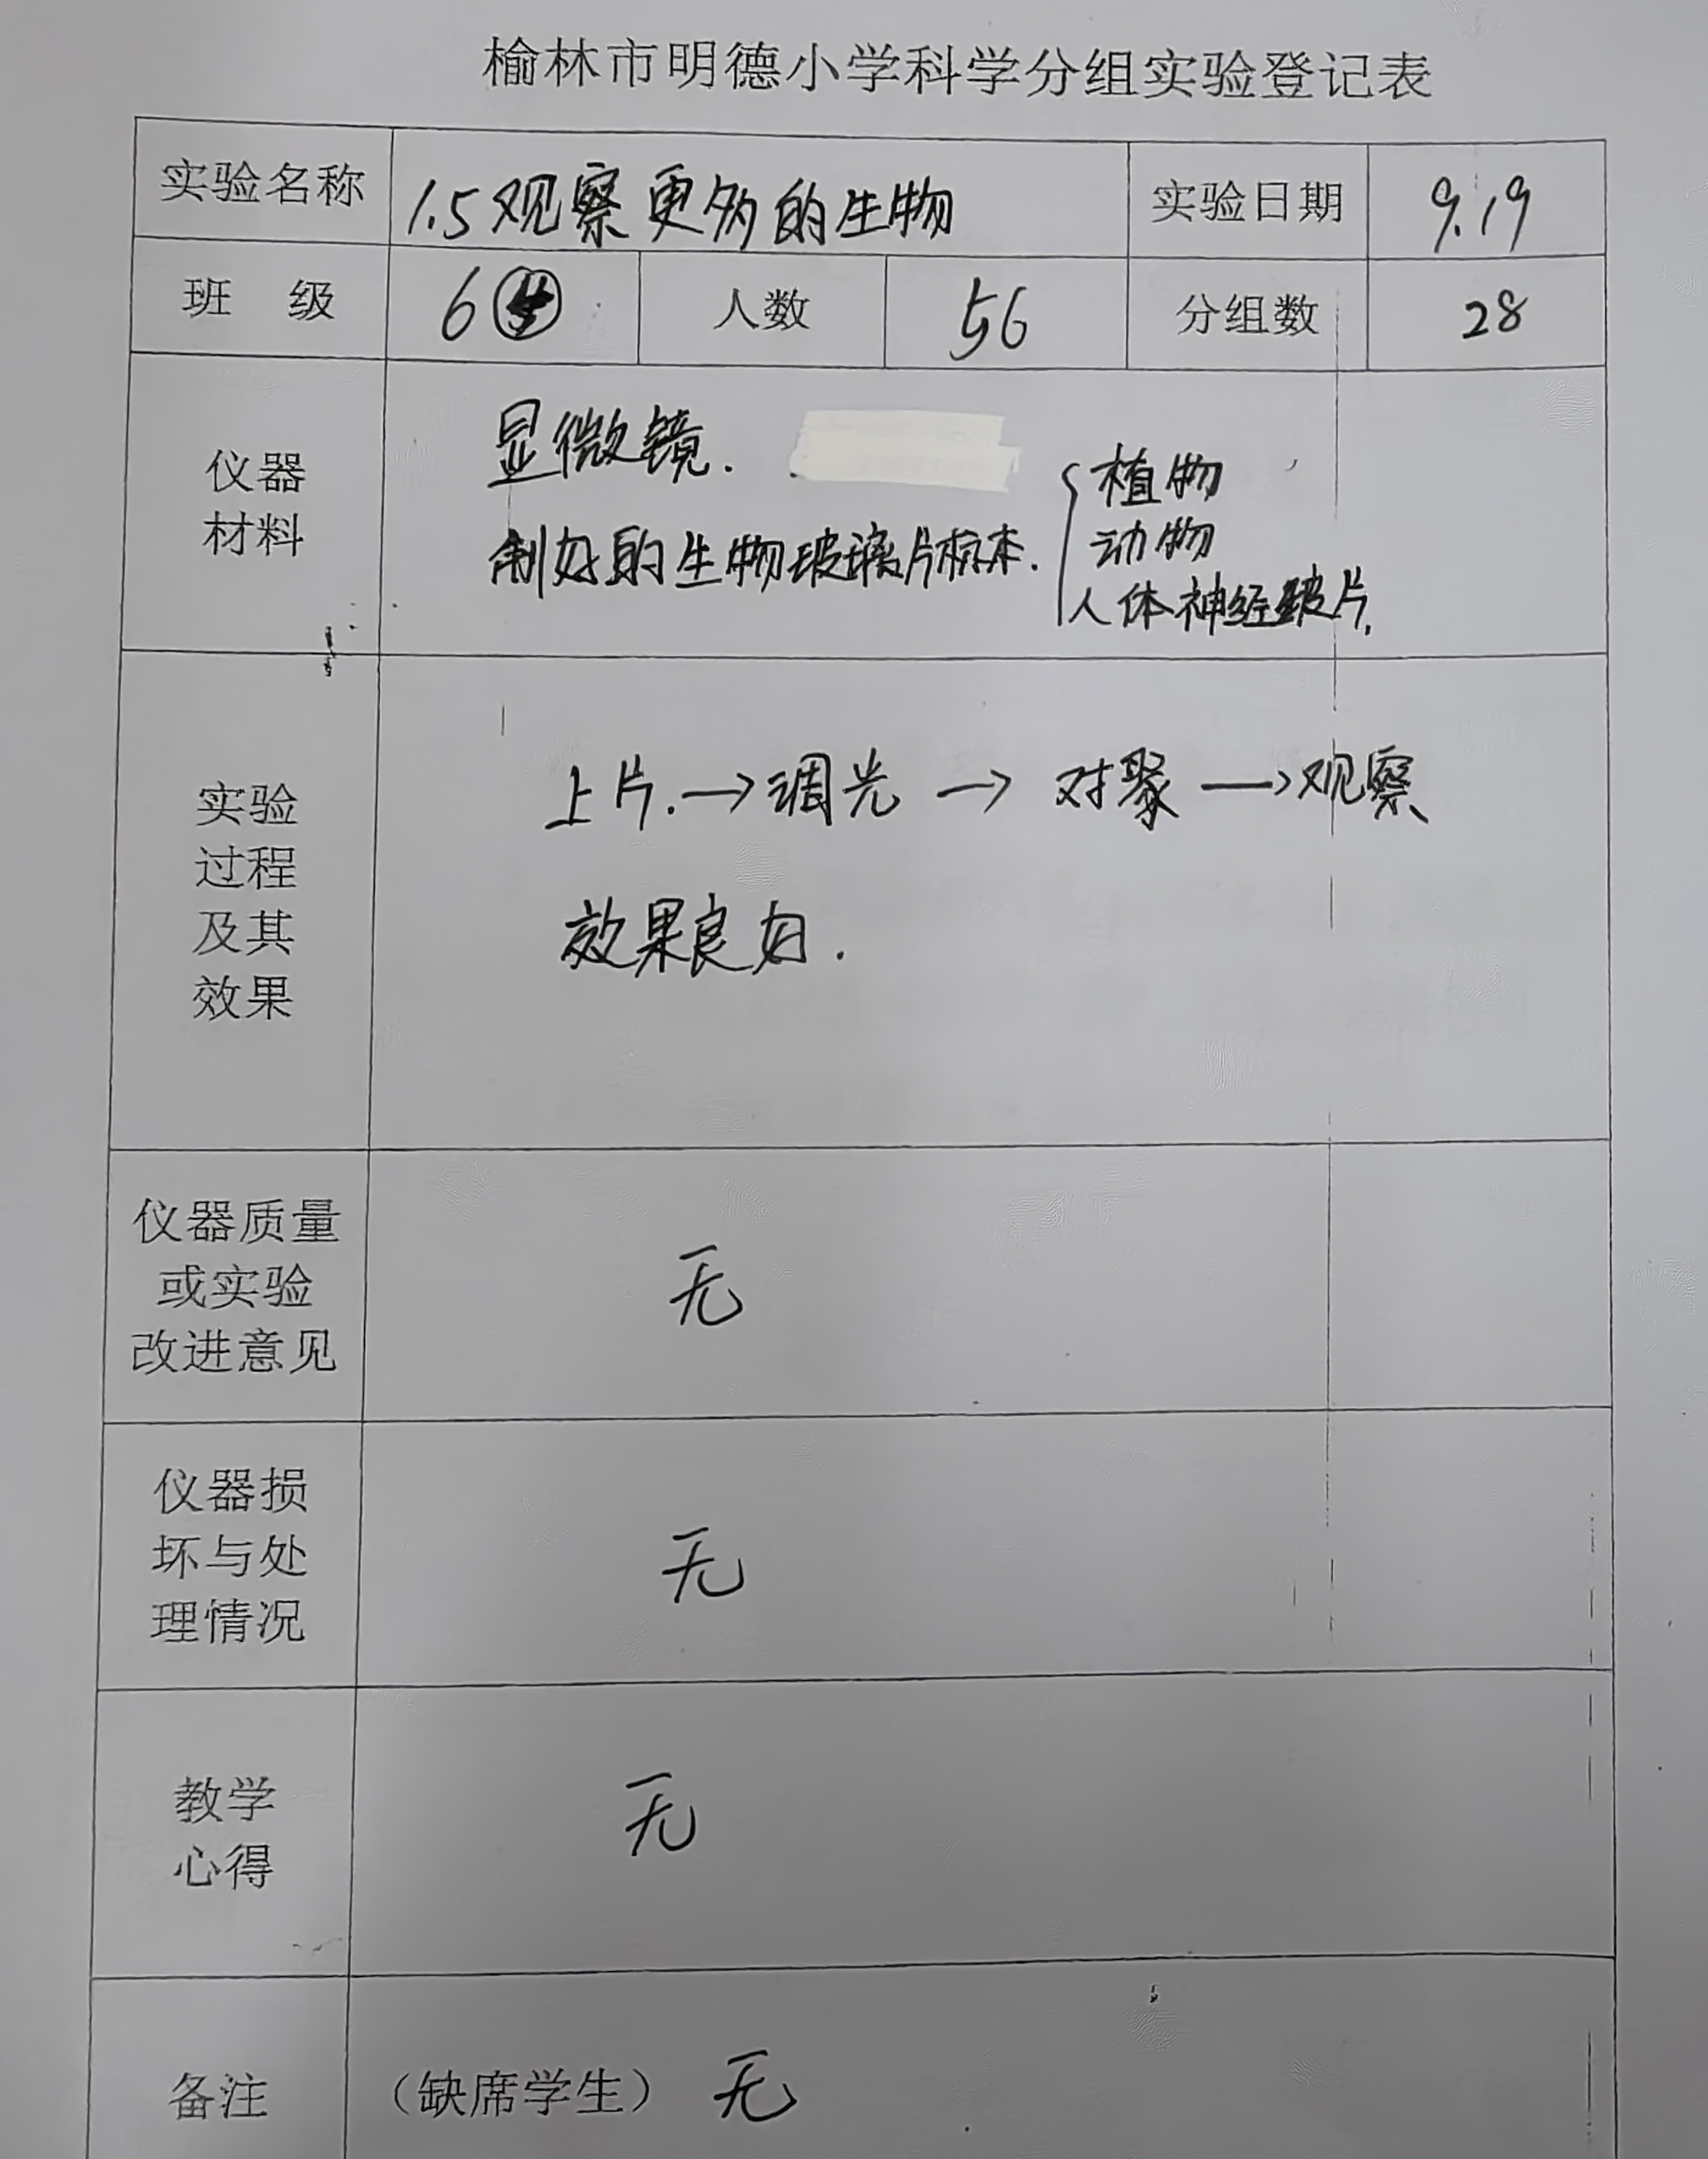 榆林市明德小学科学分组实验登记表
实验名称 1.5观察更多的生物 实验日期 9.19
班 级 6 人数 56 分组数 28
仪器
材料
显微镜.
制好的生物玻璃片标本.
植物
动物
人体神经玻片.
实验
过程
及其
效果
上片.→调光→对聚→观察
效果良好.
仪器质量
或实验
改进意见
无
仪器损
坏与处
理情况
无
教学
心得
无
备注 (缺席学生) 无